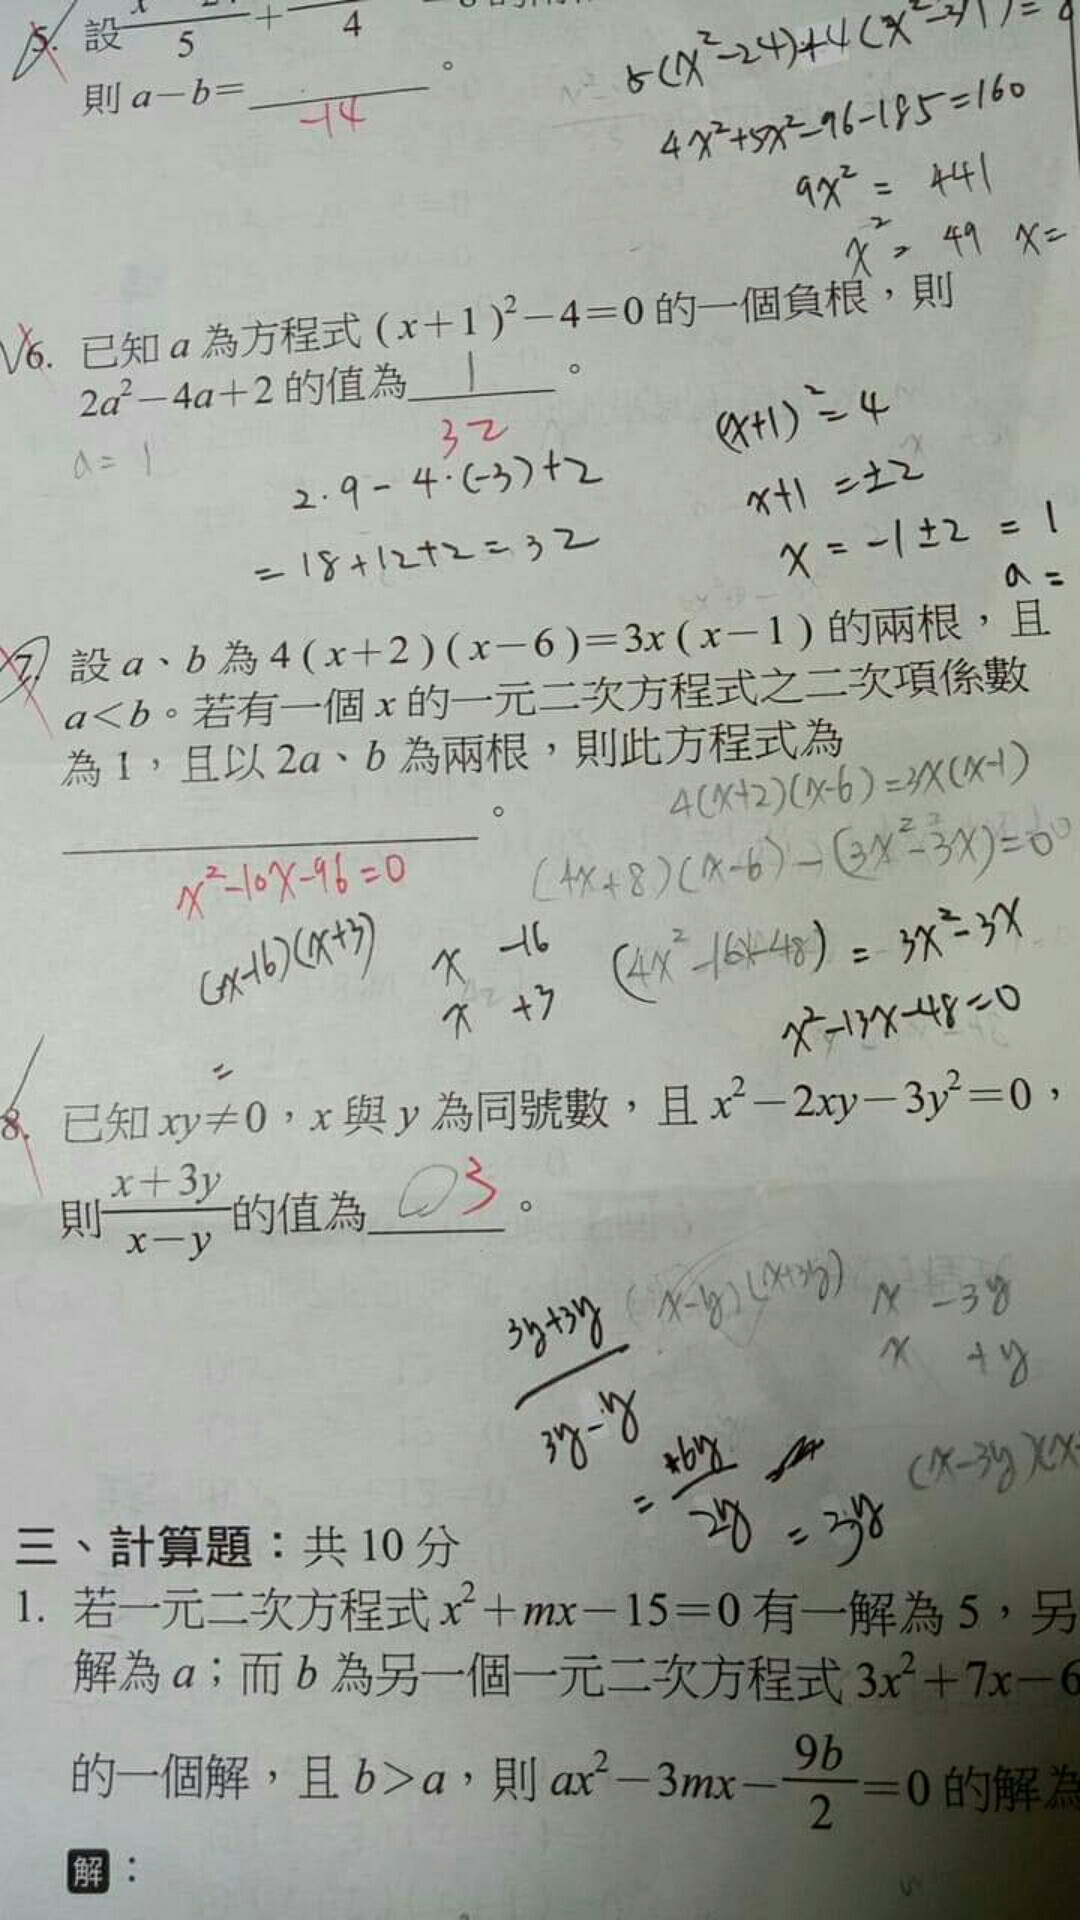 5. 設 5 + 4
則 a−b=______。
-14
(x²-24)+4(x²-
4x²+5x²-96-185=160
9x² = 441
x² = 49 x=
6. 已知 a 為方程式 (x+1)²−4=0 的一個負根，則
2a²−4a+2 的值為 1 。
32
a= 1
2·9-4·(-3)+2
=18+12+2=32
(x+1)²=4
x+1 =±2
x = -1±2 = 1
a =
7. 設 a、b 為 4(x+2)(x−6)=3x(x−1) 的兩根，且
a<b。若有一個 x 的一元二次方程式之二次項係數
為 1，且以 2a、b 為兩根，則此方程式為
______。
4(x+2)(x-6)=3x(x-1)
x²-10x-96=0
(4x+8)(x-6)-(3x²-3x)=0
(x-16)(x+3)
x -16
x +3
(4x²-16x-48) = 3x²-3x
x²-13x-48=0
=
8. 已知 xy≠0，x 與 y 為同號數，且 x²−2xy−3y²=0，
則 (x+3y)/(x−y) 的值為 0 3 。
(3y+3y)/(3y-y)
(x-y)(x+3y)
x -3y
x +y
(x-3y)(x
= 6y/2y = 3y
三、計算題：共 10 分
1. 若一元二次方程式 x²+mx−15=0 有一解為 5，另
解為 a；而 b 為另一個一元二次方程式 3x²+7x−6
的一個解，且 b>a，則 ax²−3mx−9b/2=0 的解為
解：